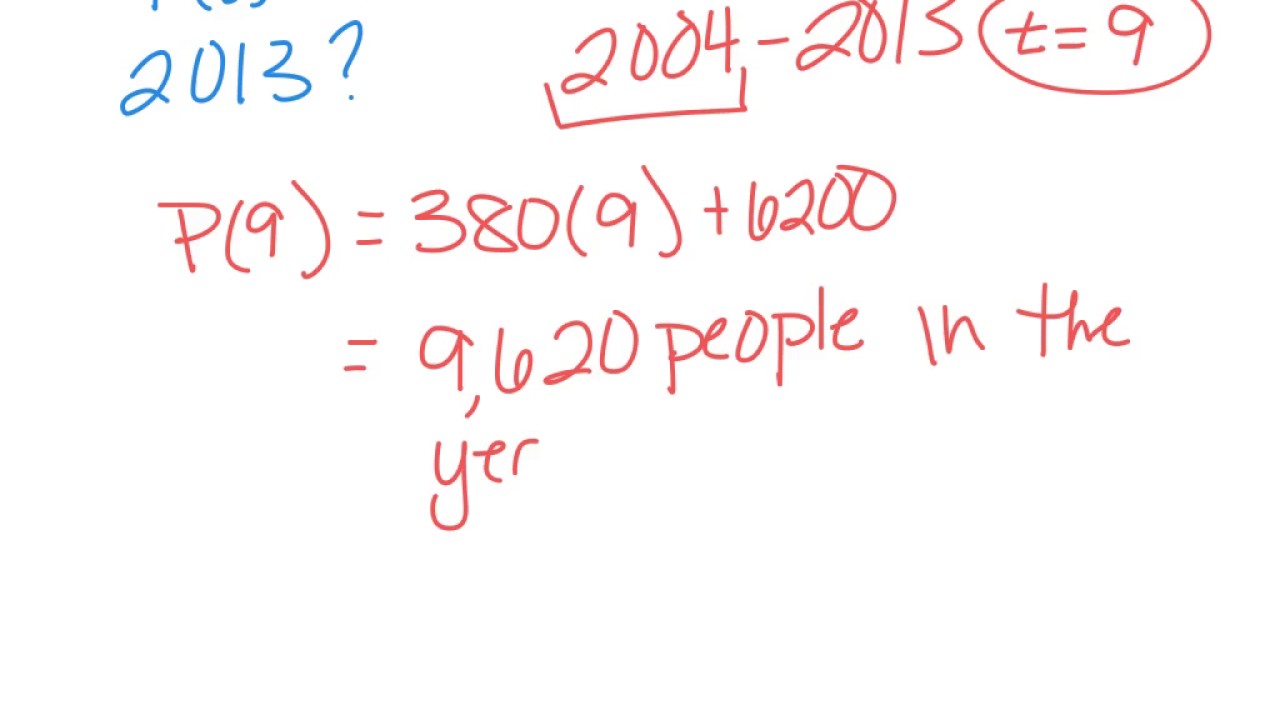 2013?
2004-2013 t=9
P(9) = 380(9) + 6200
= 9,620 people in the
yer